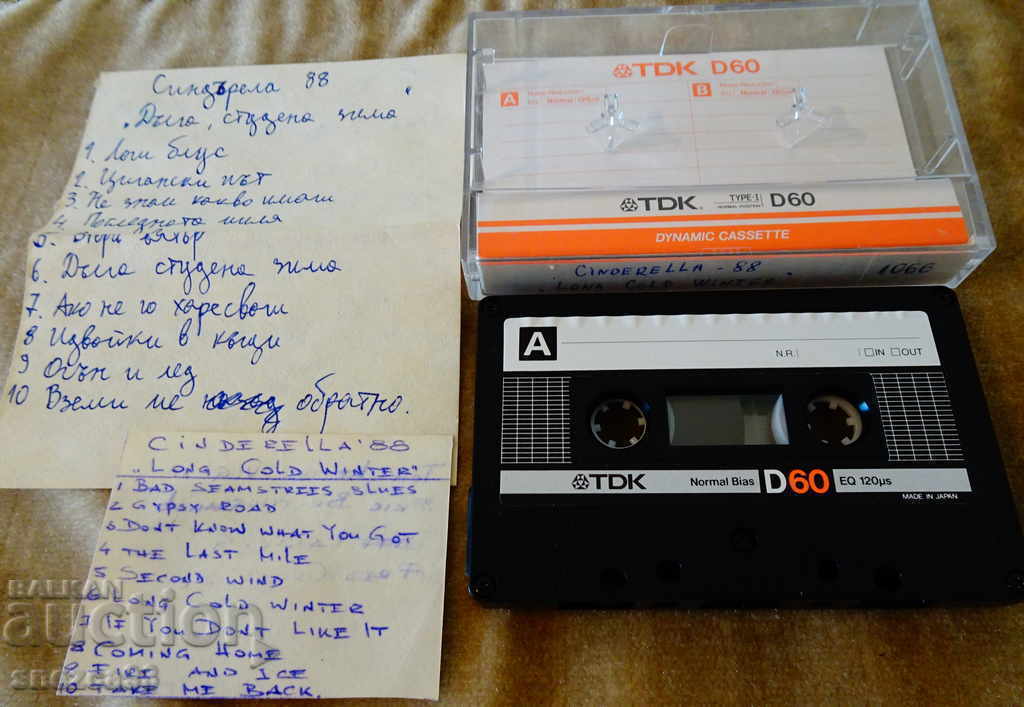 Синдърела 88
„Дълга, студена зима"
1. Лоши блус
2. Цигански път
3. Не знам какво имаш
4. Последната миля
5. втори вятър
6. Дълга студена зима
7. Ако не го харесваш
8 Идвайки в къщи
9 Огън и лед
10 Вземи ме обратно.
CINDERELLA '88
„LONG COLD WINTER"
1 BAD SEAMSTRIES BLUES
2 GYPSY ROAD
3 DONT KNOW WHAT YOU GOT
4 THE LAST MILE
5 SECOND WIND
6 LONG COLD WINTER
7 IF YOU DONT LIKE IT
8 COMING HOME
9 FIRE AND ICE
10 TAKE ME BACK.
TDK D60
A Noise Reduction
EQ. Normal 120µs
B Noise Reduction
EQ. Normal 120µs
TDK TYPE-I NORMAL POSITION D60
DYNAMIC CASSETTE
CINDERELLA - 88 1066
„LONG COLD WINTER"
A
N.R. IN OUT
TDK Normal Bias D60 EQ 120µs
MADE IN JAPAN
BALKAN
auction